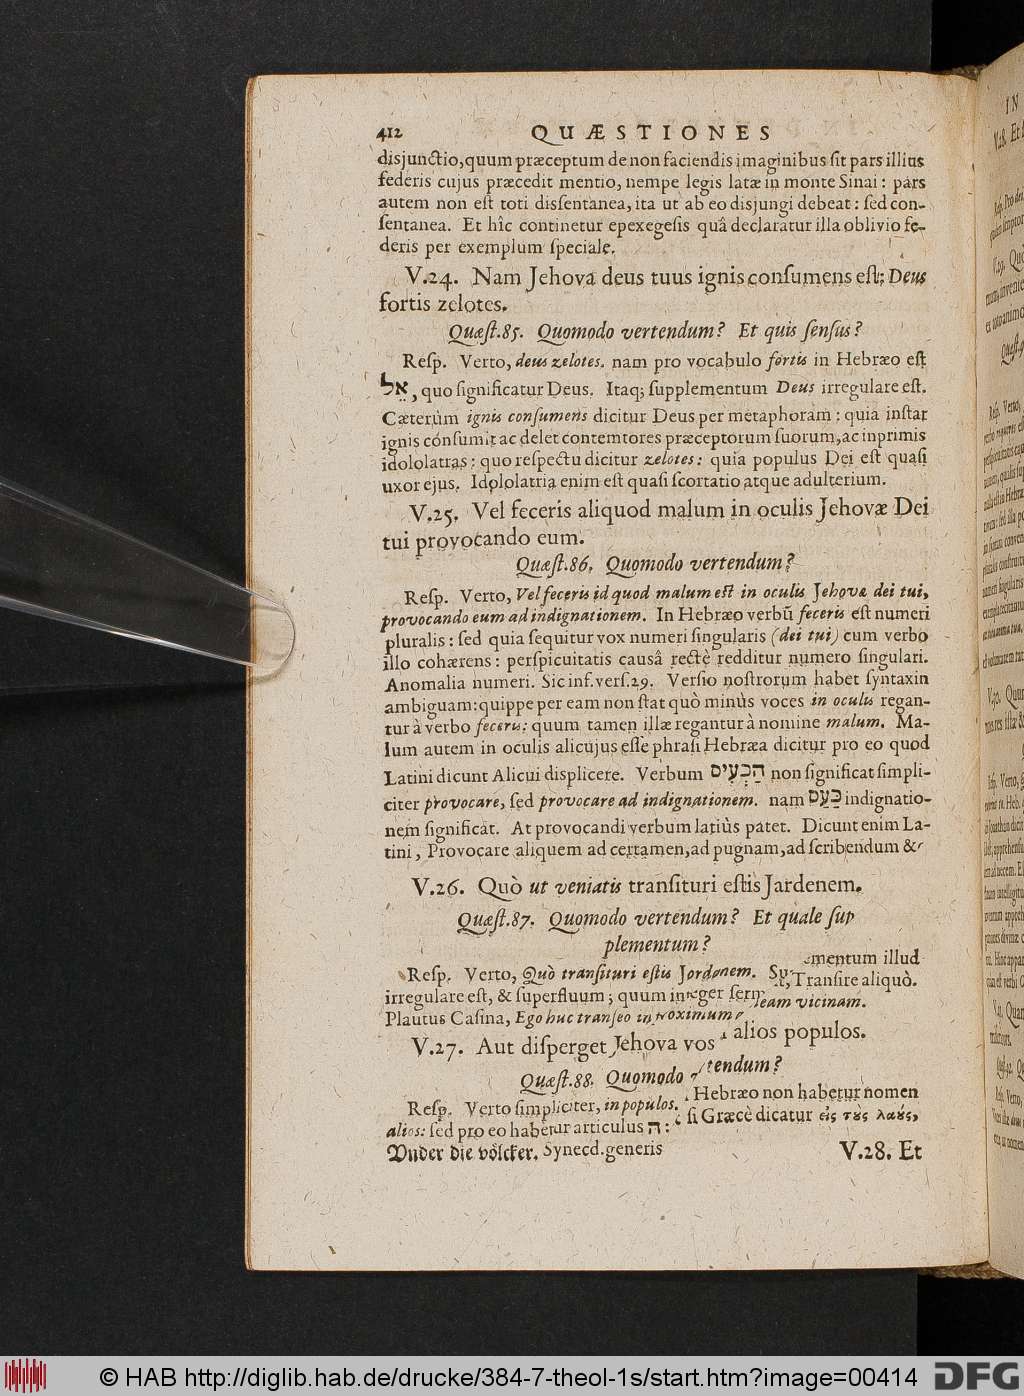 412 QUÆSTIONES
disjunctio, quum præceptum de non faciendis imaginibus sit pars illius
federis cujus præcedit mentio, nempe legis latæ in monte Sinai: pars
autem non est toti dissentanea, ita ut ab eo disjungi debeat: sed con-
sentanea. Et hîc continetur epexegesis quâ declaratur illa oblivio fe-
deris per exemplum speciale.
V.24. Nam Jehova deus tuus ignis consumens est; Deus
fortis zelotes.
Quæst.85. Quomodo vertendum? Et quis sensus?
Resp. Verto, deus zelotes. nam pro vocabulo fortis in Hebræo est
אֵל, quo significatur Deus. Itaq; supplementum Deus irregulare est.
Cæterùm ignis consumens dicitur Deus per metaphoram: quia instar
ignis consumit ac delet contemtores præceptorum suorum, ac inprimis
idololatras: quo respectu dicitur zelotes: quia populus Dei est quasi
uxor ejus. Idololatria enim est quasi scortatio atque adulterium.
V.25. Vel feceris aliquod malum in oculis Jehovæ Dei
tui provocando eum.
Quæst.86. Quomodo vertendum?
Resp. Verto, Vel feceris id quod malum est in oculis Jehovæ dei tui,
provocando eum ad indignationem. In Hebræo verbū feceris est numeri
pluralis: sed quia sequitur vox numeri singularis (dei tui) cum verbo
illo cohærens: perspicuitatis causâ rectè redditur numero singulari.
Anomalia numeri. Sic inf. vers.29. Versio nostrorum habet syntaxin
ambiguam: quippe per eam non stat quò minùs voces in oculis regan-
tur à verbo feceris: quum tamen illæ regantur à nomine malum. Ma-
lum autem in oculis alicujus esse phrasi Hebræa dicitur pro eo quod
Latini dicunt Alicui displicere. Verbum הַכְעִיס non significat simpli-
citer provocare, sed provocare ad indignationem. nam כַּעַס indignatio-
nem significat. At provocandi verbum latiùs patet. Dicunt enim La-
tini, Provocare aliquem ad certamen, ad pugnam, ad scribendum &c
V.26. Quò ut veniatis transituri estis Jardenem.
Quæst.87. Quomodo vertendum? Et quale sup
plementum?
Resp. Verto, Quò transituri estis Jordenem. Supplementum illud
irregulare est, & superfluum; quum integer sermo Transire aliquò.
Plautus Casina, Ego huc transeo in proximum eam vicinam.
V.27. Aut disperget Jehova vos alios populos.
Quæst.88. Quomodo vertendum?
Resp. Verto simpliciter, in populos. Hebræo non habetur nomen
alios: sed pro eo habetur articulus ה: si Græcè dicatur εἰς τοὺς λαούς,
Vnder die völcker. Synecd. generis
V.28. Et
© HAB http://diglib.hab.de/drucke/384-7-theol-1s/start.htm?image=00414
DFG